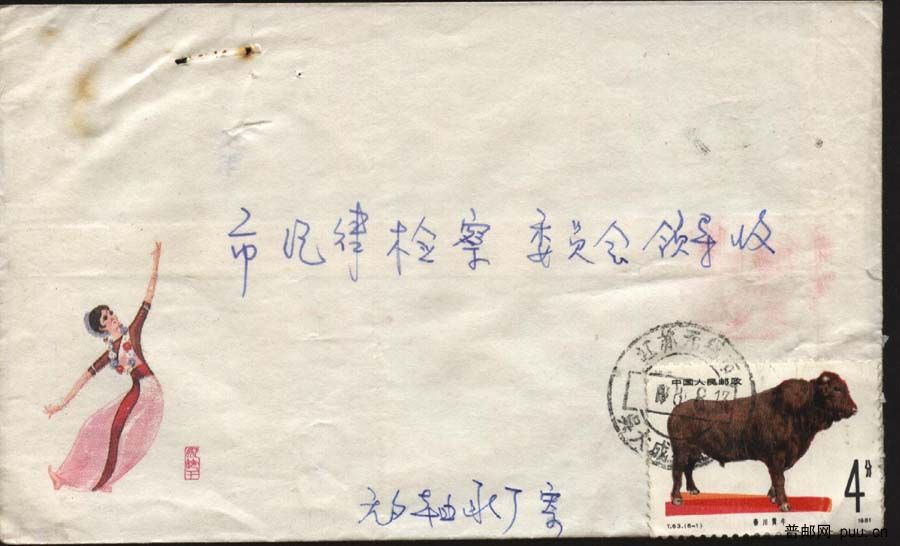 市纪律检察委员会领导收
江苏无锡
中国人民邮政
4分
T.63.(6-1)
1981
无夕轴承厂寄
普邮网 puu.cn